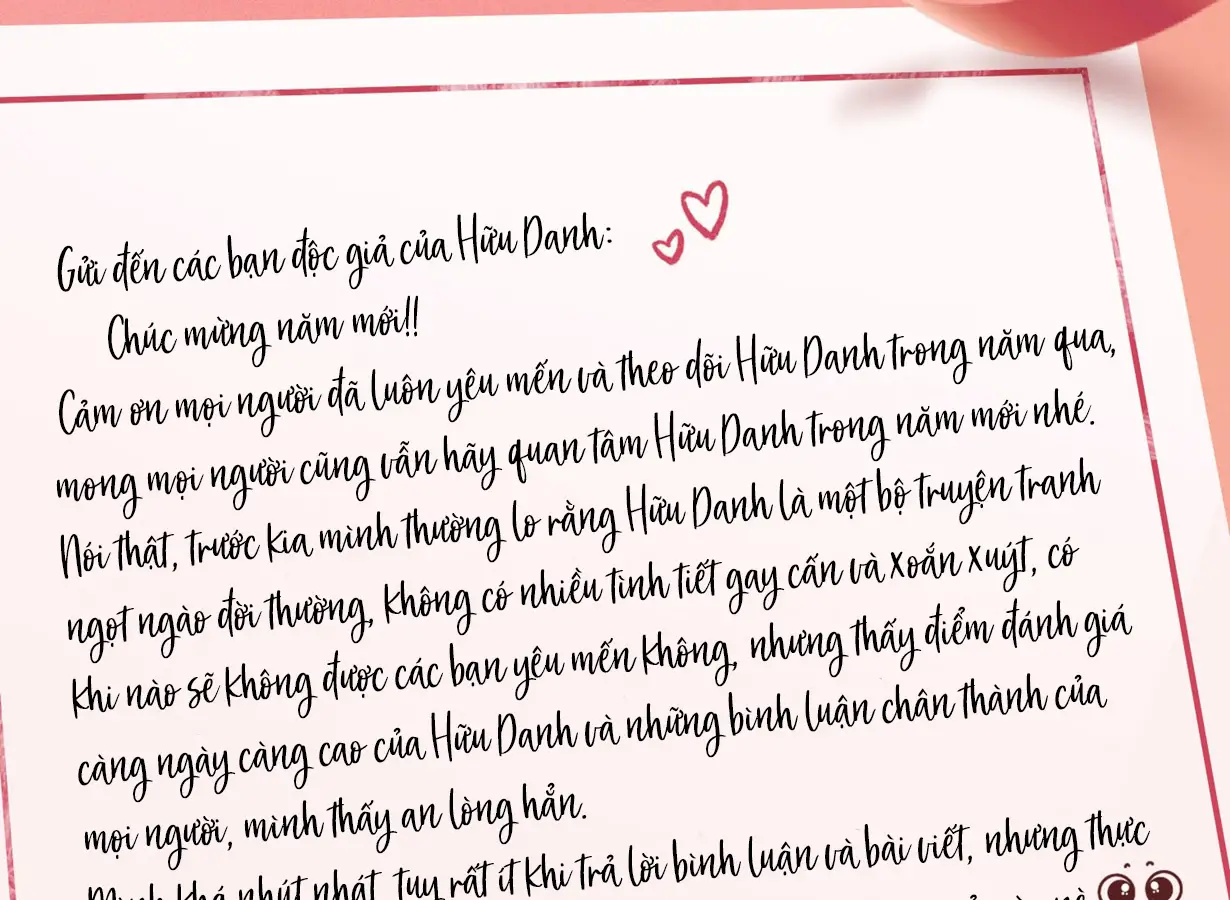 Gửi đến các bạn độc giả của Hữu Danh:
Chúc mừng năm mới!!
Cảm ơn mọi người đã luôn yêu mến và theo dõi Hữu Danh trong năm qua,
mong mọi người cũng vẫn hãy quan tâm Hữu Danh trong năm mới nhé.
Nói thật, trước kia mình thường lo rằng Hữu Danh là một bộ truyện tranh
ngọt ngào đời thường, không có nhiều tình tiết gay cấn và xoắn xuýt, có
khi nào sẽ không được các bạn yêu mến không, nhưng thấy điểm đánh giá
càng ngày càng cao của Hữu Danh và những bình luận chân thành của
mọi người, mình thấy an lòng hẳn.
Mình khá nhút nhát, tuy rất ít khi trả lời bình luận và bài viết, nhưng thực